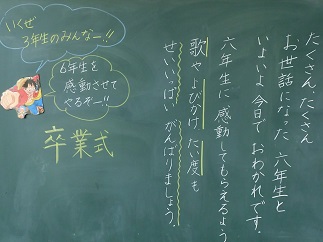 たくさん、たくさん
お世話になった 六年生と
いよいよ今日で おわかれです。
六年生に 感動してもらえるよう
歌やよびかけ たい度も
せいいっぱい がんばりましょう。
いくぜ
3年生のみんなー!!
6年生を
感動させて
やるぞー!!
卒業式